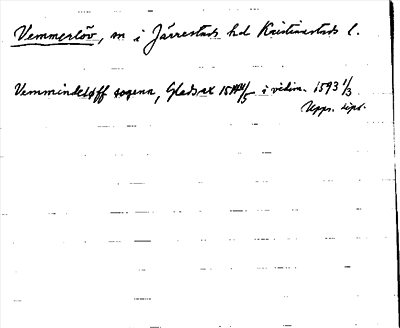 Vemmerlöv, sn i Järrestads hd Kristianstads l.
Vemmindeløff sogenn, Gladsax i vidim. 1593 1/3
Upps. dipl.